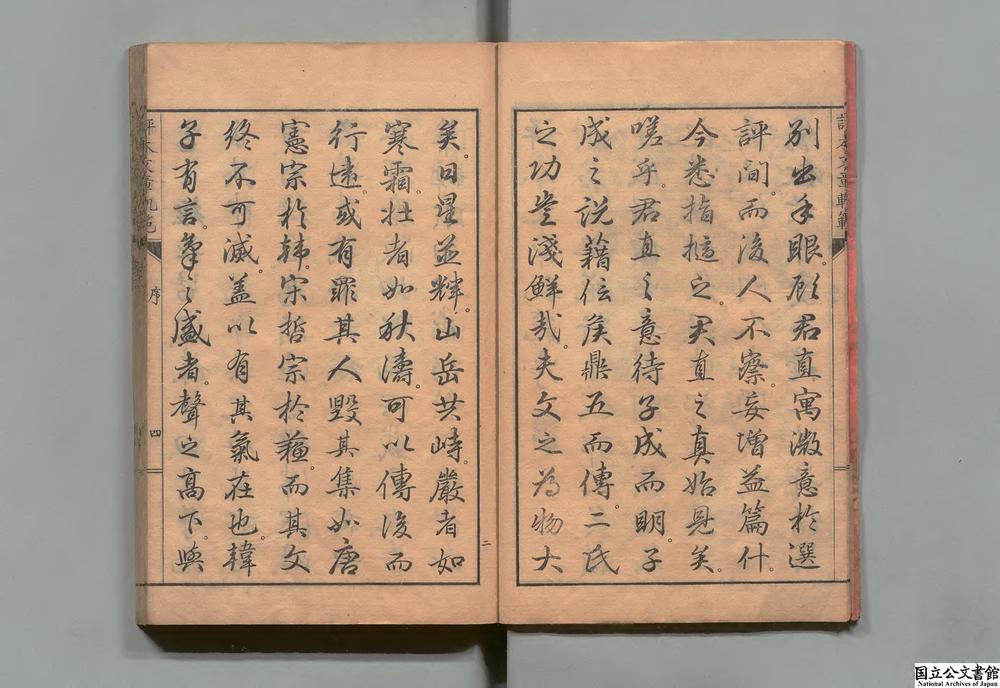 別出手眼。顧君直寓激意於選
評間。而後人不察。妄增益篇什。
今悉指摘之。君直之真始見矣。
嗟乎。君直之意待子成而明。子
成之說藉信侯鼎五而傳。二氏
之功豈淺鮮哉。夫文之為物大
矣。日星並輝。山岳共峙。嚴者如
寒霜。壮者如秋濤。可以傳後而
行遠。或有罪其人毀其集。如唐
憲宗於韓。宋哲宗於蘓。而其文
終不可滅。盖以有其氣在也。韓
子有言。氣之盛者。聲之高下。與
序
四
二
国立公文書館
National Archives of Japan